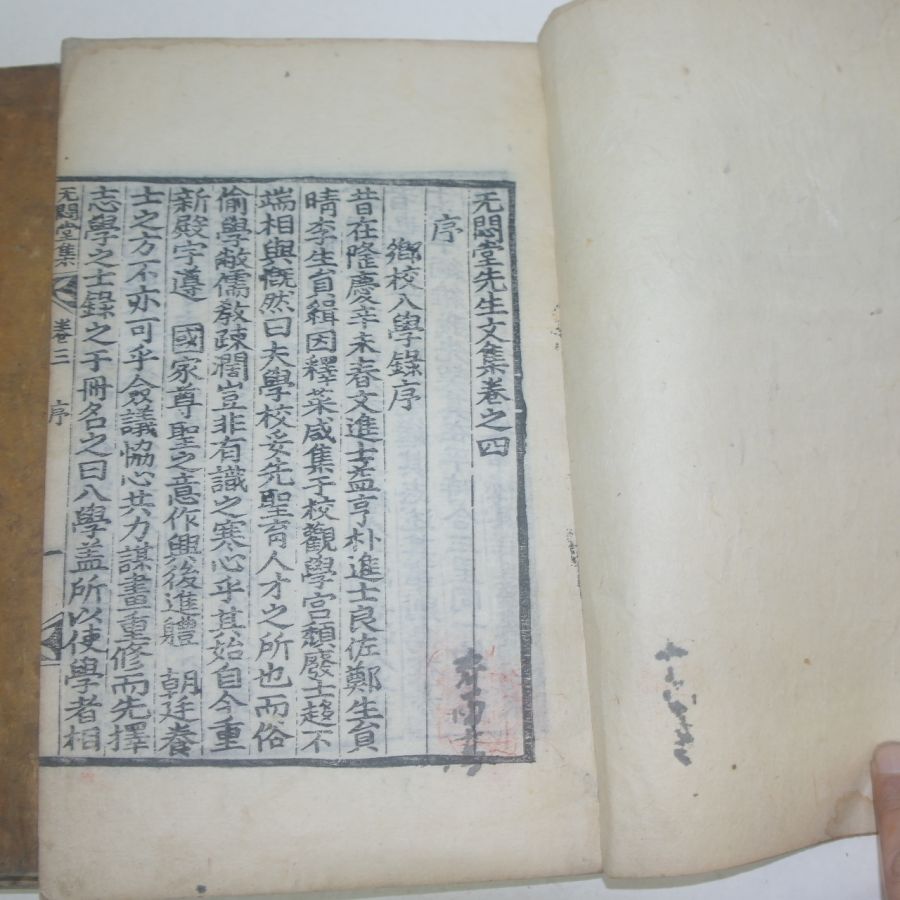 无悶堂先生文集卷之四
序
鄕校入學錄序
昔在隆慶辛未春文進士孟亨朴進士良佐鄭生員
晴李生員緝因釋菜咸集于校觀學宮頹廢士趨不
端相與慨然曰夫學校妥先聖育人才之所也而俗
偷學敝儒敎疎濶豈非有識之寒心乎其始自今重
新殿宇遵 國家尊聖之意作興後進軆 朝廷養
士之方不亦可乎僉議協心共力謀畫重修而先擇
志學之士錄之于冊名之曰入學盖所以使學者相
无悶堂集 卷三 序